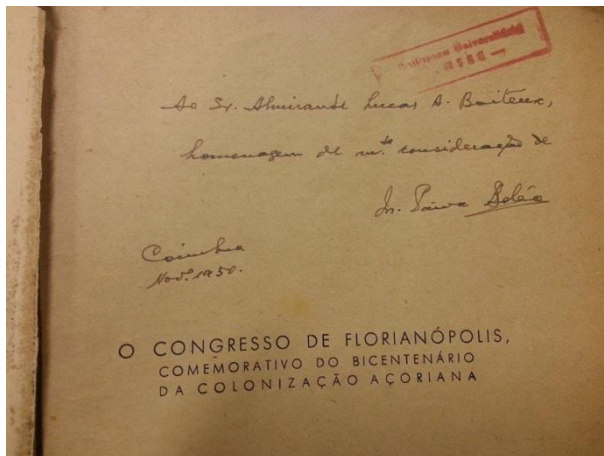 Biblioteca Universitária
UFSC
Ao Sr. Almirante Lucas A. Boiteux,
homenagem de m.ta consideração de
M. Paiva Boléo
Coimbra
Nov.º 1950.
O CONGRESSO DE FLORIANÓPOLIS,
COMEMORATIVO DO BICENTENÁRIO
DA COLONIZAÇÃO AÇORIANA